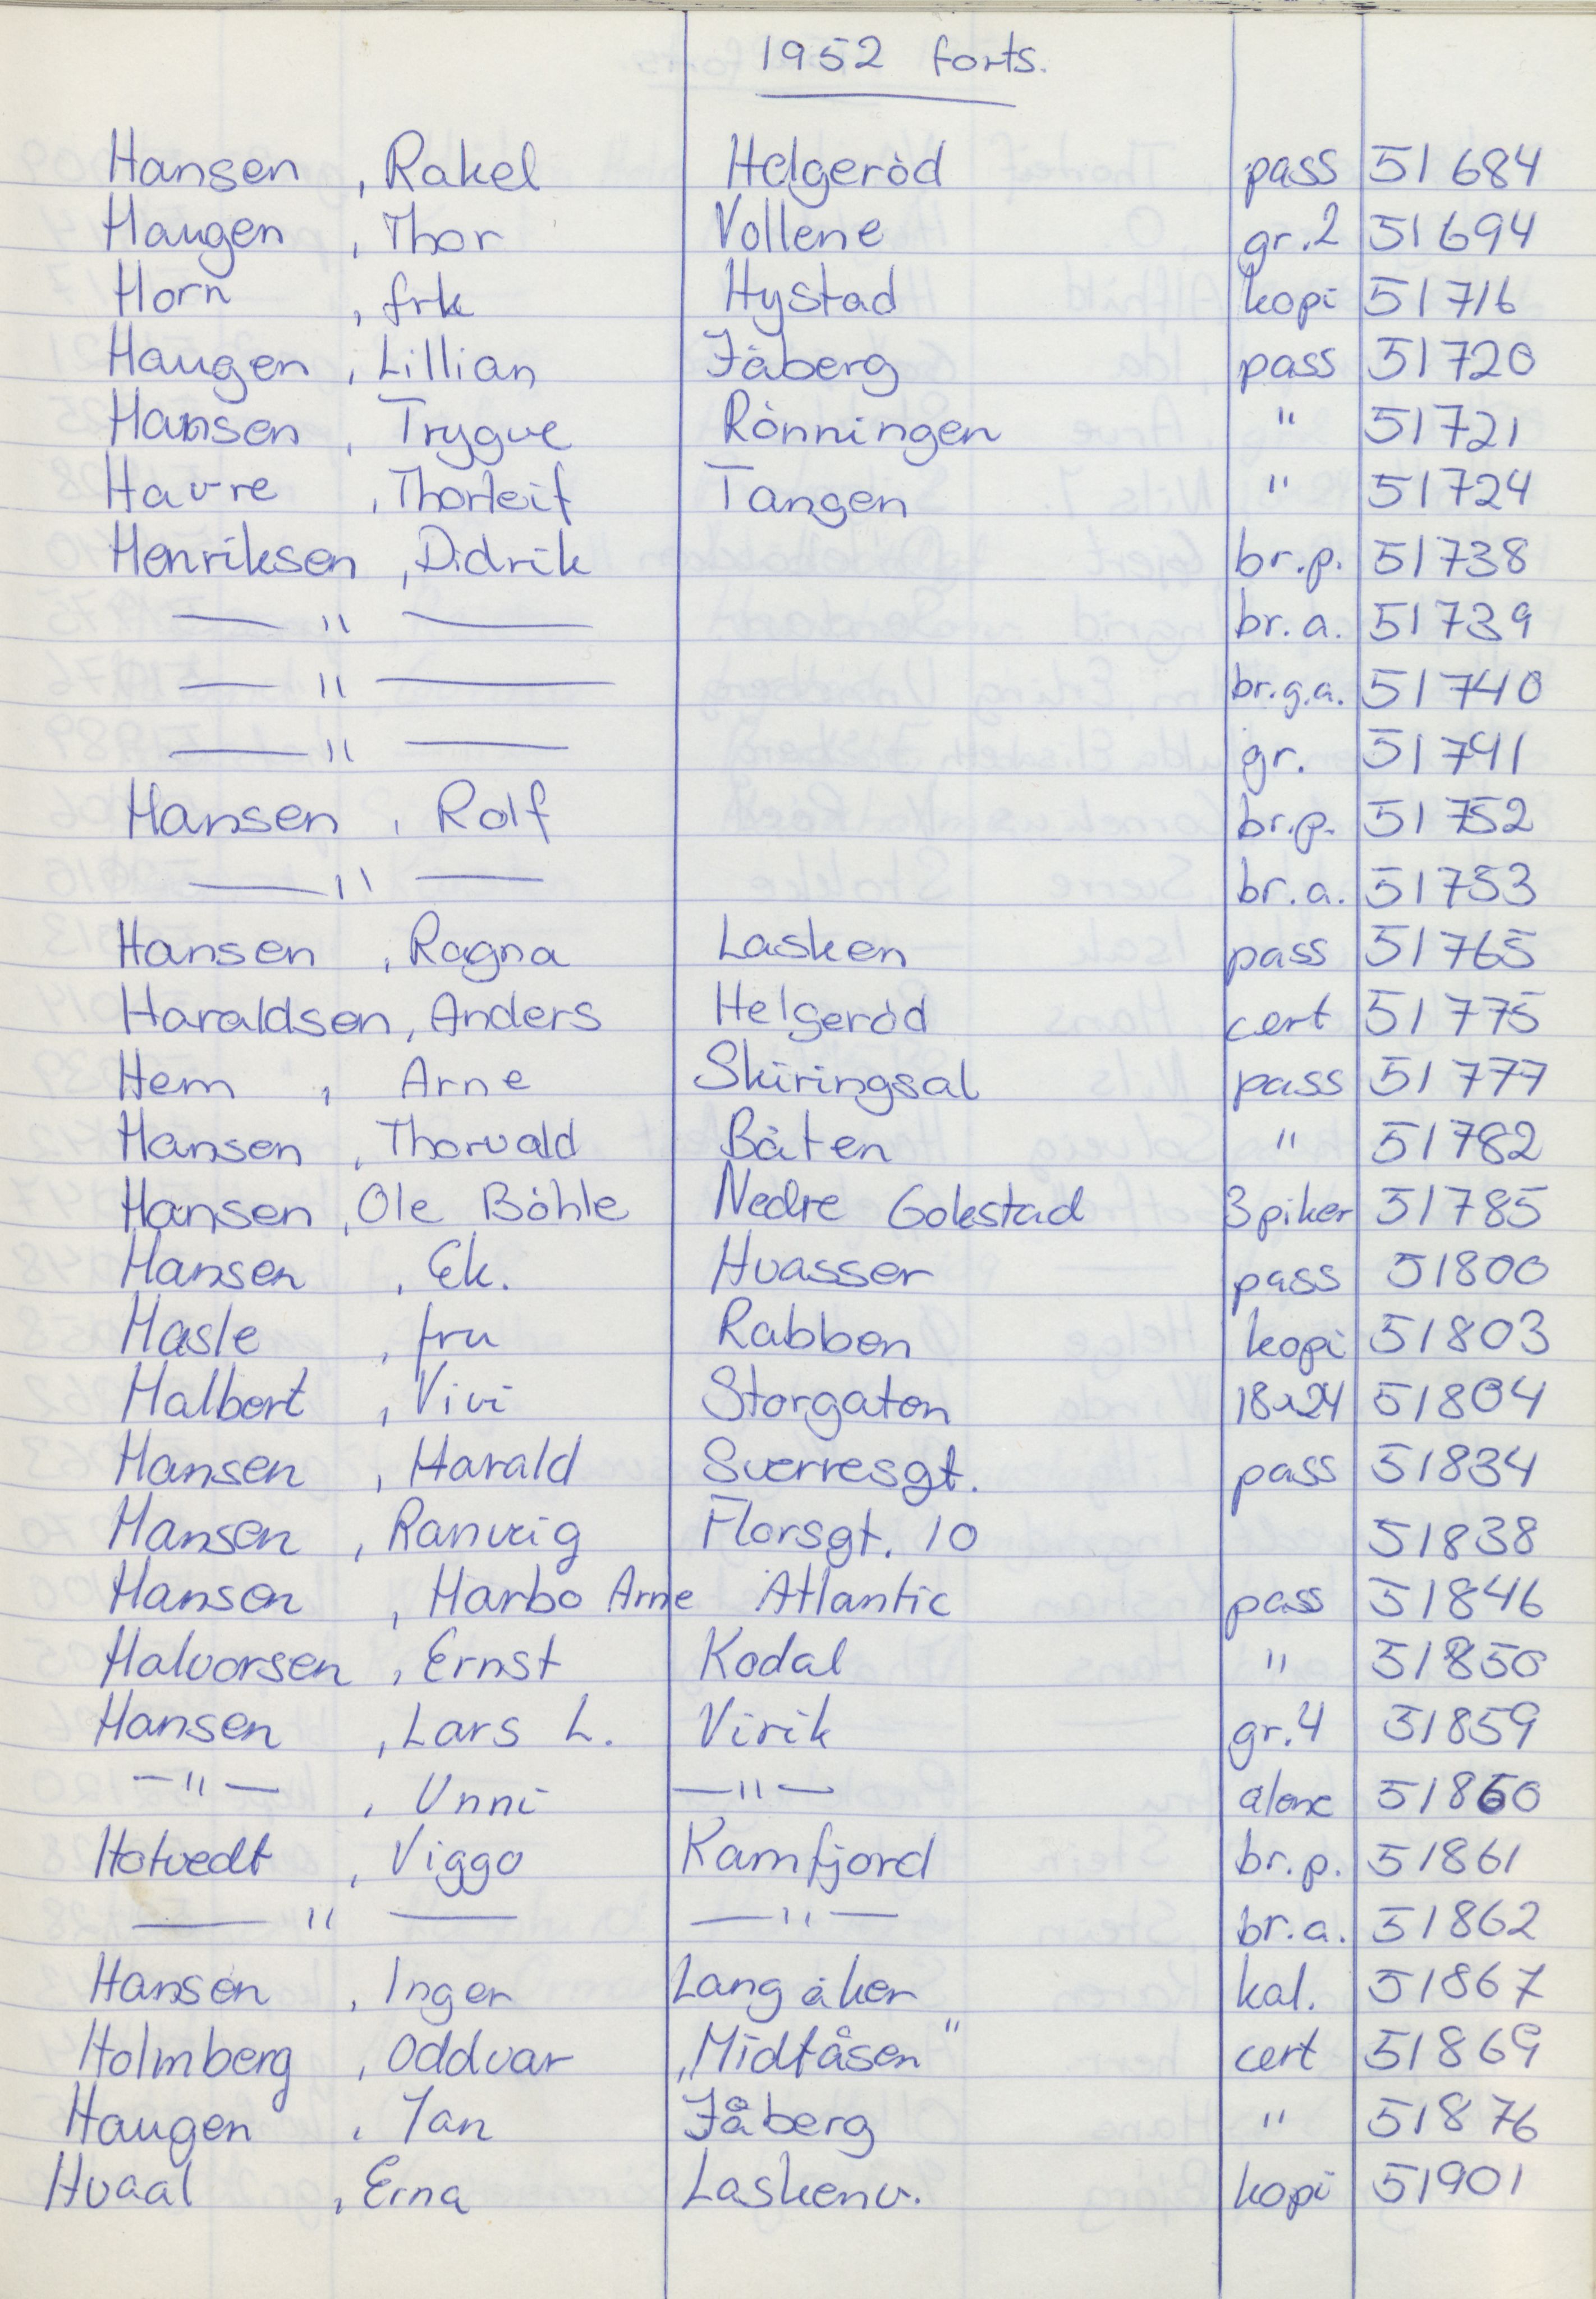 1952 forts.
Hansen , Rakel Helgeröd pass 51684
Haugen , Thor Vollene gr.2 51694
Horn , frk Hystad kopi 51716
Haugen , Lillian Jåberg pass 51720
Hansen , Trygve Rönningen " 51721
Havre , Thorleif Tangen " 51724
Henriksen , Didrik br.p. 51738
— " — br.a. 51739
— " — br.g.a. 51740
— " — gr. 51741
Hansen , Rolf br.p. 51752
— " — br.a. 51753
Hansen , Ragna Lasken pass 51765
Haraldsen , Anders Helgeröd cert 51775
Hem , Arne Skiringsal pass 51777
Hansen , Thorvald Båten " 51782
Hansen , Ole Böhle Nedre Gokstad 3 piker 51785
Hansen , Ek. Hvasser pass 51800
Hasle , fru Rabben kopi 51803
Halbert , Vivi Storgaten 18x24 51804
Hansen , Harald Sverresgt. pass 51834
Hansen , Ranveig Florsgt. 10 51838
Hansen , Harbo Arne Atlantic pass 51846
Halvorsen , Ernst Kodal " 51850
Hansen , Lars L. Virik gr.4 51859
— " — , Unni — " — alene 51860
Hotvedt , Viggo Kamfjord br.p. 51861
— " — — " — br.a. 51862
Hansen , Inger Langåker kal. 51867
Holmberg , Oddvar „Midtåsen" cert 51869
Haugen , Jan Jåberg " 51876
Hvaal , Erna Laskenv. kopi 51901